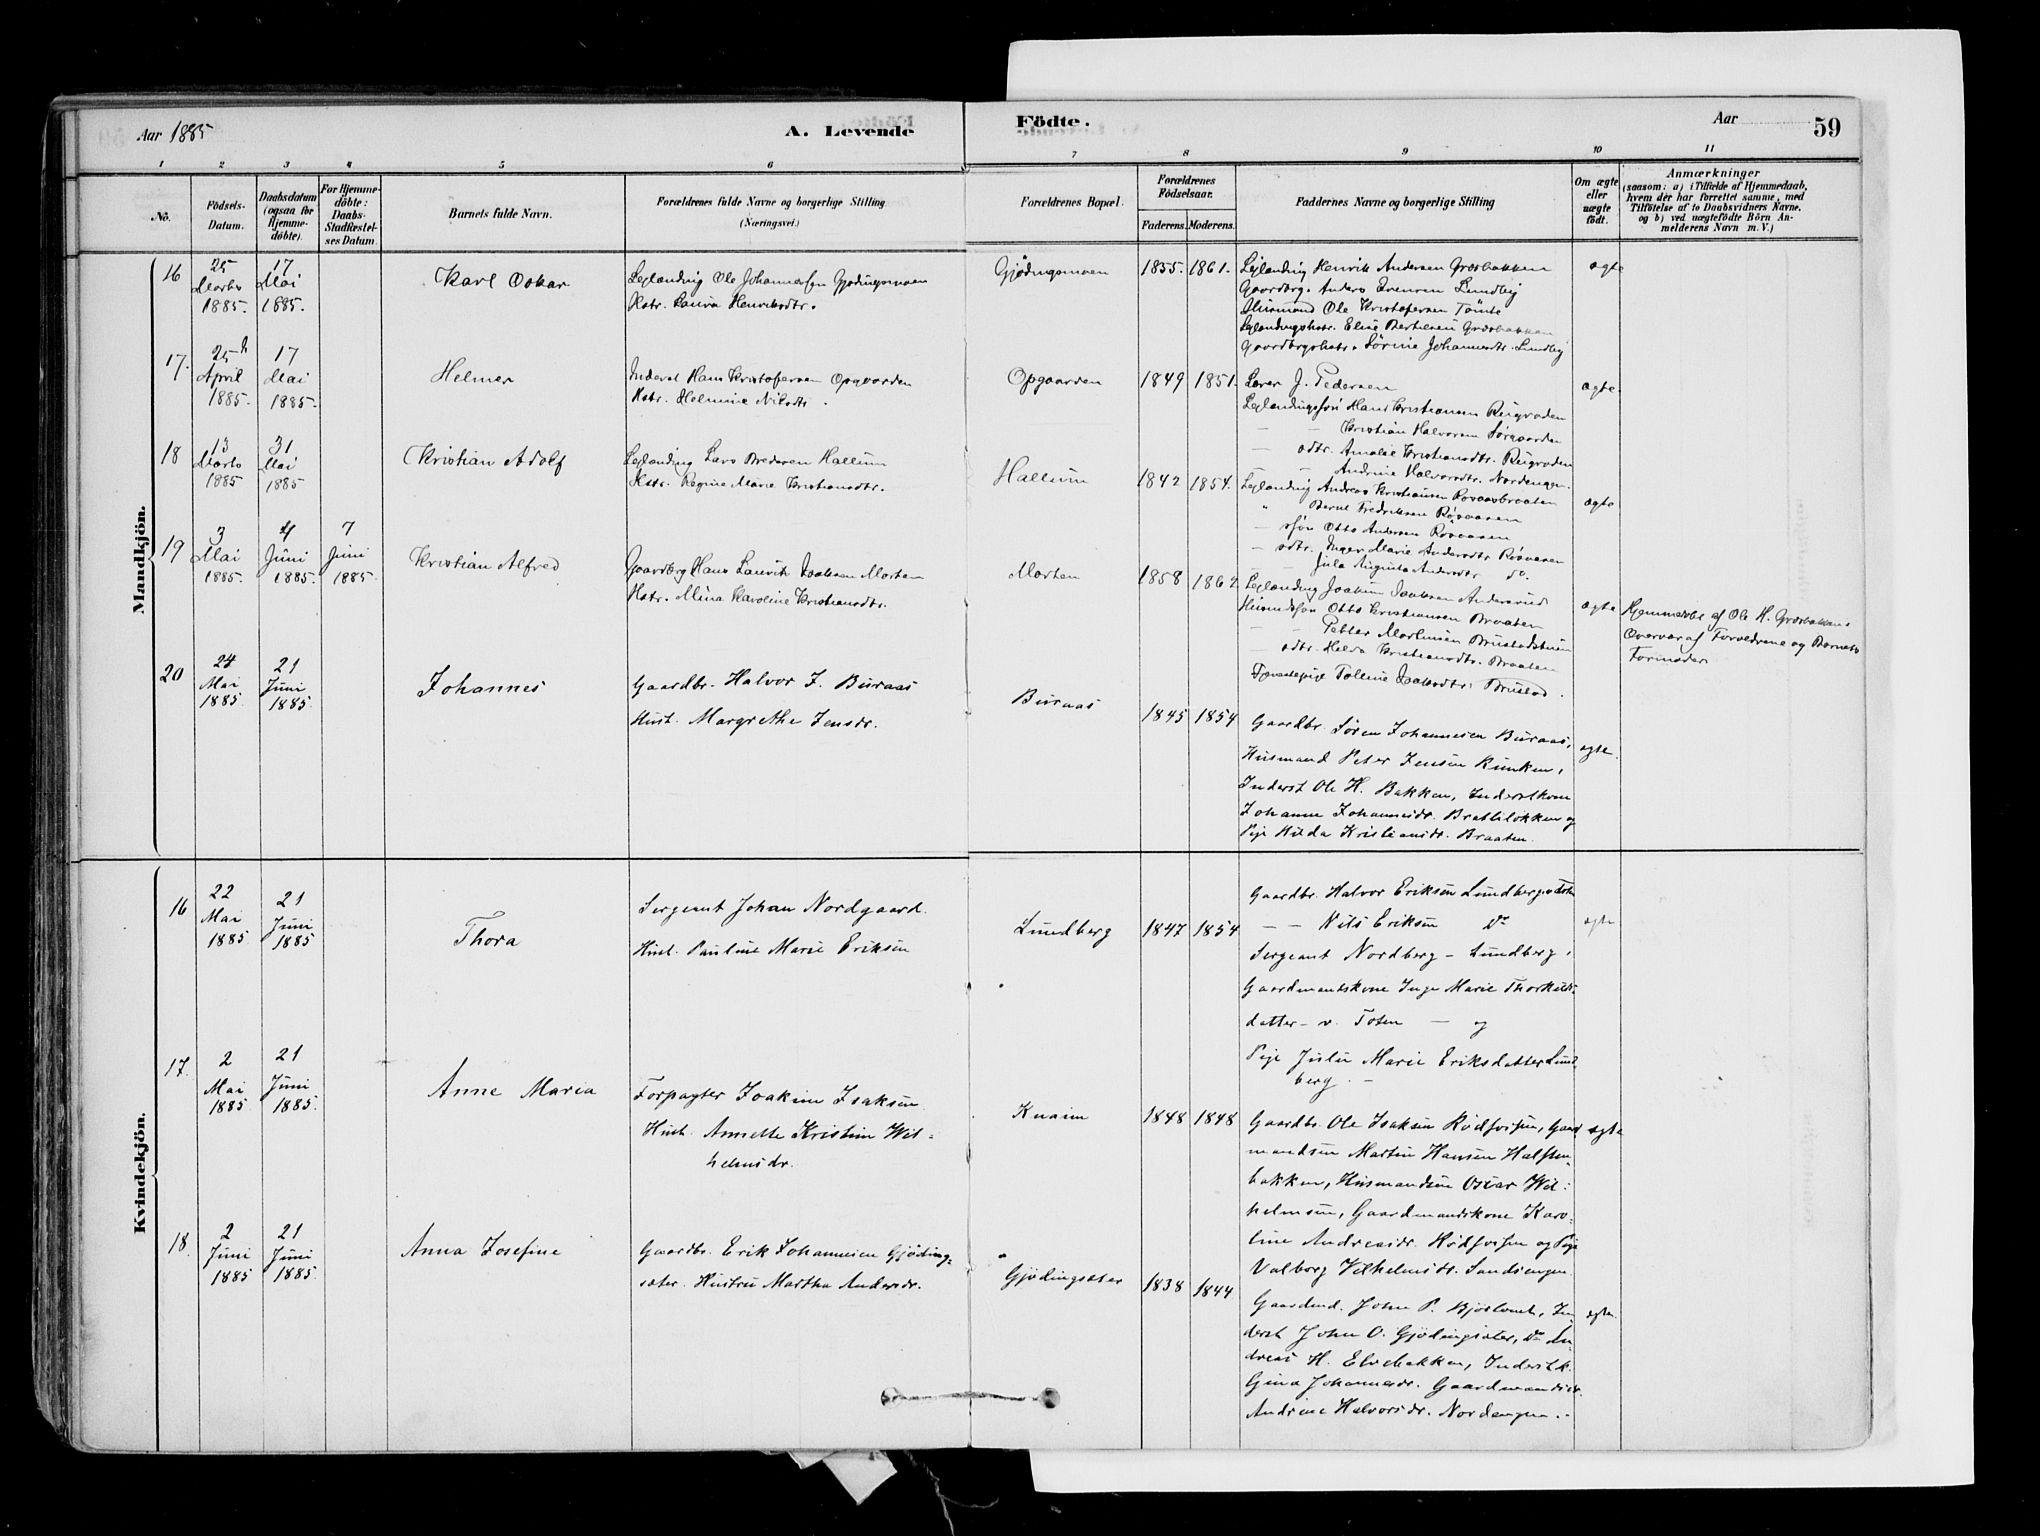 Aar 1885
A. Levende
Födte.
Aar
59
1 2 3 4 5 6 7 8 9 10 11
No.
Födsels-
Datum.
Daabsdatum
(ogsaa for
hjemme-
döbte).
For Hjemme-
döbte:
Daabs-
Stadfæstel-
ses Datum.
Barnets fulde Navn.
Forældrenes fulde Navne og borgerlige Stilling
(Næringsvei.)
Forældrenes Bopæl.
Forældrenes
Födselsaar.
Faderens. Moderens.
Faddernes Navne og borgerlige Stilling
Om ægte
eller
uægte
födt.
Anmærkninger
(saasom: a) i Tilfælde af Hjemmedaab,
hvem der har forrettet samme, med
Tilföielse af to Daabsvidners Navne,
og b) ved uægtefödte Börn An-
melderens Navn m. V.)
Mandkjön.
16
25
Marts
1885.
17
Mai
1885.
Karl Oskar
Leilænding Ole Johannessen Gjødingsmoen
Hstr. Laura Henriksdtr.
Gjødingsmoen
1855. 1861.
Leilænding Henrik Andersen Græsbakken
Gaardbrg. Anders Evensen Lundby
Husmand Ole Kristofersen Tømte
Leilændingshstr. Elise Bertelsen Græsbakken
Gaardbrgshstr. Sørine Johannesdtr. Lundby
ægte
17.
25
April
1885.
17
Mai
1885.
Helmer
Inderst Hans Kristofersen Opgaarden
Hstr. Helmine Nilsdtr.
Opgaarden
1849 1851.
Lærer J. Pedersen
Leilændingssøn Hans Kristiansen Rugroden
— — Kristian Halvorsen Sørgaarden
— odtr. Amalie Kristiansdtr. Rugroden
Andrine Halvorsdtr. Nordengen.
ægte
18
13
Marts
1885
31
Mai
1885
Kristian Adolf
Leilænding Lars Bredesen Hallum
Hstr. Regine Marie Kristiansdtr.
Hallum
1842 1854.
Leilænding Andreas Kristiansen Rosaasbraaten
" Bernt Fredriksen Røsaasen
— sføn Otto Andersen Røsaasen
— odtr. Inger Marie Andersdtr. Røsaasen
— Jula Augusta Andersdtr. do.
ægte
19
3
Mai
1885.
4
Juni
1885.
7
Juni
1885
Kristian Alfred
Gaardbrg Hans Lauvik Isaksen Morten
Hstr. Mina Karoline Kristiansdtr.
Morten
1858 1862
Leilænding Joakim Isaksen Andersrud
Husmdsføn Otto Kristiansen Braaten
— — Petter Martinsen Brustadstuen
— odtr. Helda Kristiansdtr. Braaten
Tjenestepige Tolline Isaksdtr. Brustad.
ægte
Hjemmedøbt af Ole H. Græsbakken i
Overvær af Forældrene og Barnets
Formoder
20
24
Mai
1885
21
Juni
1885
Johannes
Gaardbr. Halvor J. Buraas
Hust. Margrethe Jensdr.
Buraas
1845 1854
Gaardbr. Søren Johannesen Buraas,
Husmand Peter Jensen Runken,
Inderst Ole H. Bakken, Inderstkone
Johanne Johannesdr. Bratteløkken og
Pige Hilda Kristiansdr. Braaten.
ægte.
Kvindekjön.
16
22
Mai
1885
21
Juni
1885
Thora
Sergeant Johan Nordgaard.
Hust. Pauline Marie Eriksen
Lundberg
1847 1854
Gaardbr. Halvor Eriksen Lundberg v. Toten
— — Nils Eriksen Do
Sergeant Nordberg – Lundberg,
Gaardmandskone Inge Marie Thorkilds-
datter – v. Toten — og
Pige Julie Marie Eriksdatter Lund-
berg. —
ægte
17.
2
Mai
1885
21
Juni
1885.
Anne Maria
Forpagter Joakim Isaksen
Hust. Annette Kristine Wil=
helmsdr.
Knaim
1848 1848
Gaardbr. Ole Isaksen Rødfossen, Gaard
mandssøn Martin Hansen Halsten-
bakken, Husmandssøn Oscar Wil=
helmsen, Gaardmandskone Karo-
line Andreasdr. Rødfossen og Pige
Valborg Vilhelmsdr. Sandsengen
ægte
18.
2
Juni
1885
21
Juni
1885
Anna Josefine
Gaardbr. Erik Johannesen Gjöding=
sæter. Hustru Martha Andersdr.
Gjödingsæter
1838 1844
Gaardmd. John P. Bjørlvent, In-
derst John O. Gjödingsæter, Do An-
dreas H. Elvebakken, Inderstk.
Gina Johannesdr. Gaardmandsk.
Andrine Halvorsdr. Nordengen. -
ægte.